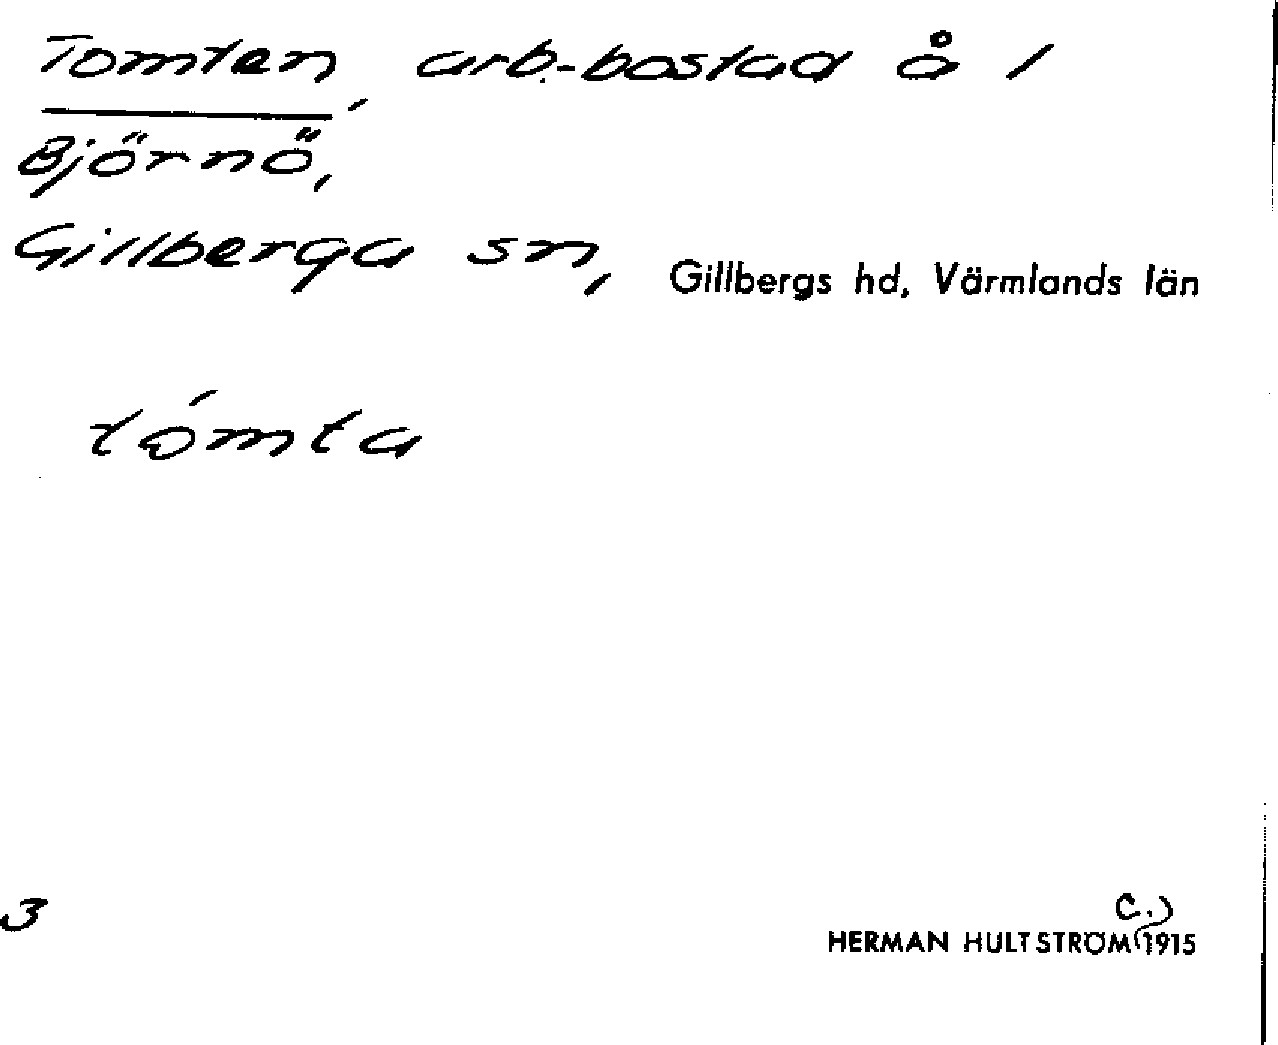 Tomten, arb.-bostad å 1
Björnö,
Gillberga sn, Gillbergs hd, Värmlands län
tómta
3
HERMAN HULTSTRÖM (C.) 1915